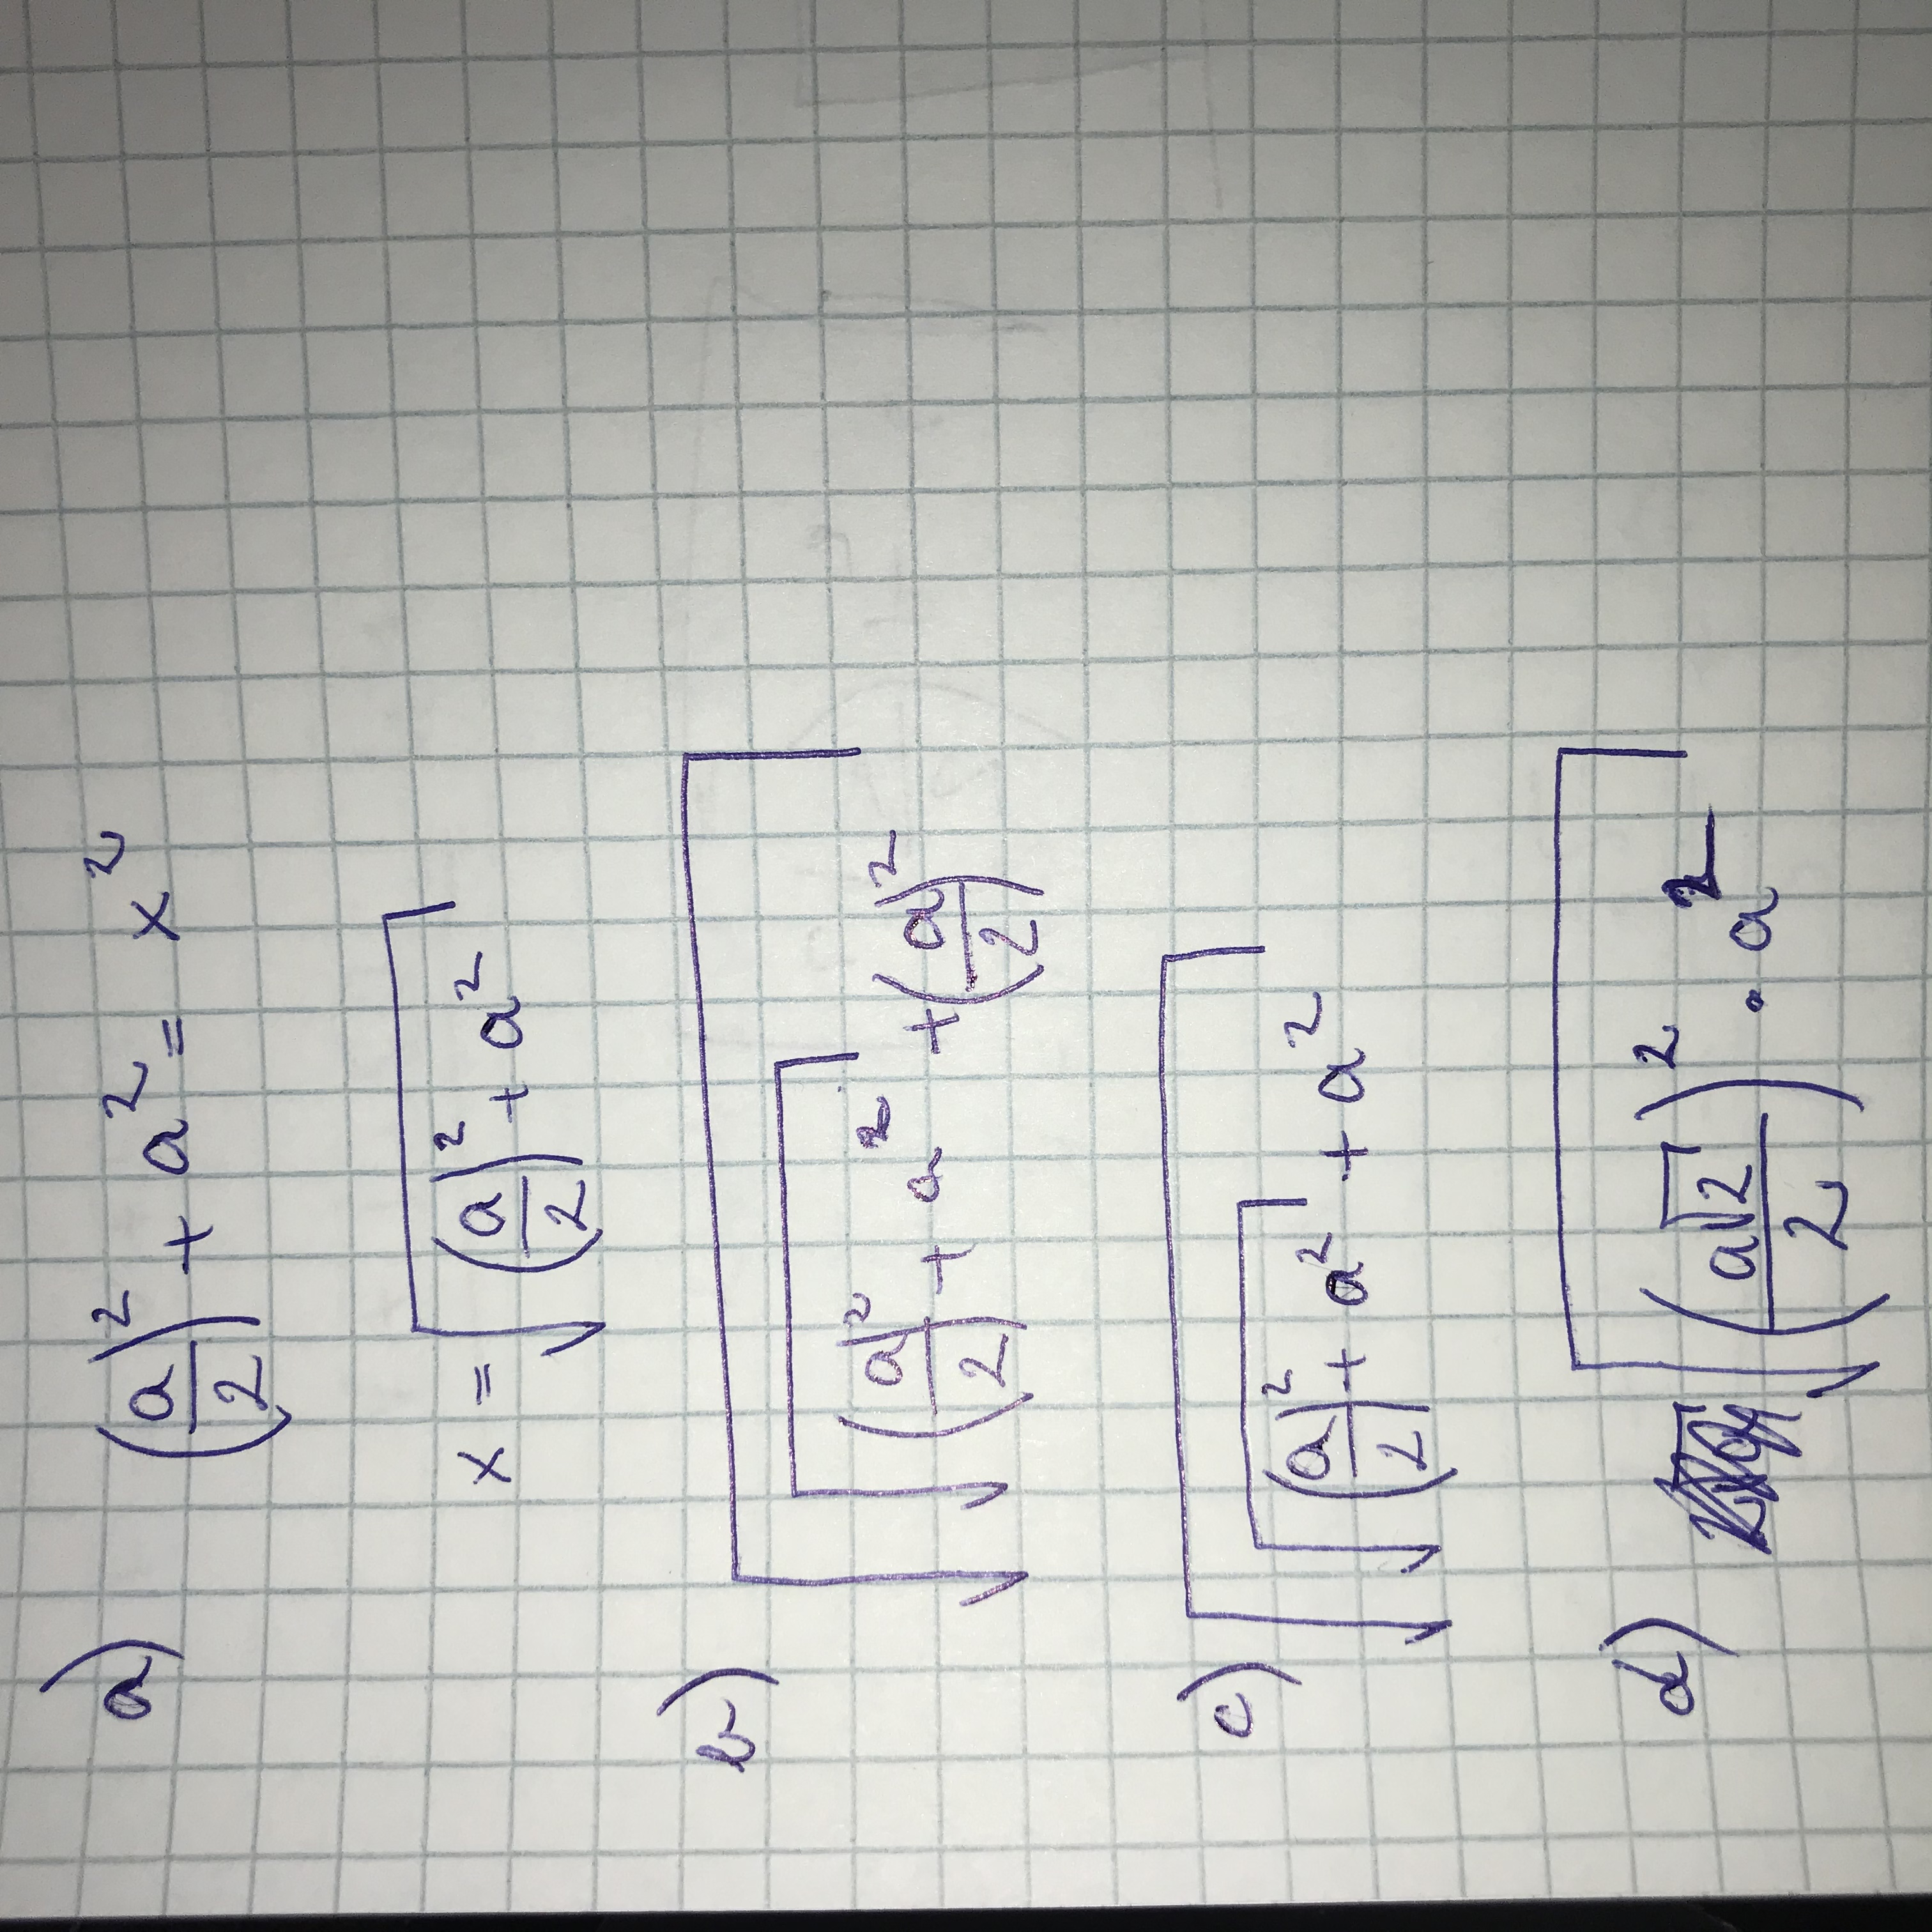 a) (a/2)² + a² = x²
x = √((a/2)² + a²)
b) √(√((a/2)² + a²) + (a/2)²)
c) √(√((a/2)² + a²) + a²)
d) √((a√2/2)² · a²)